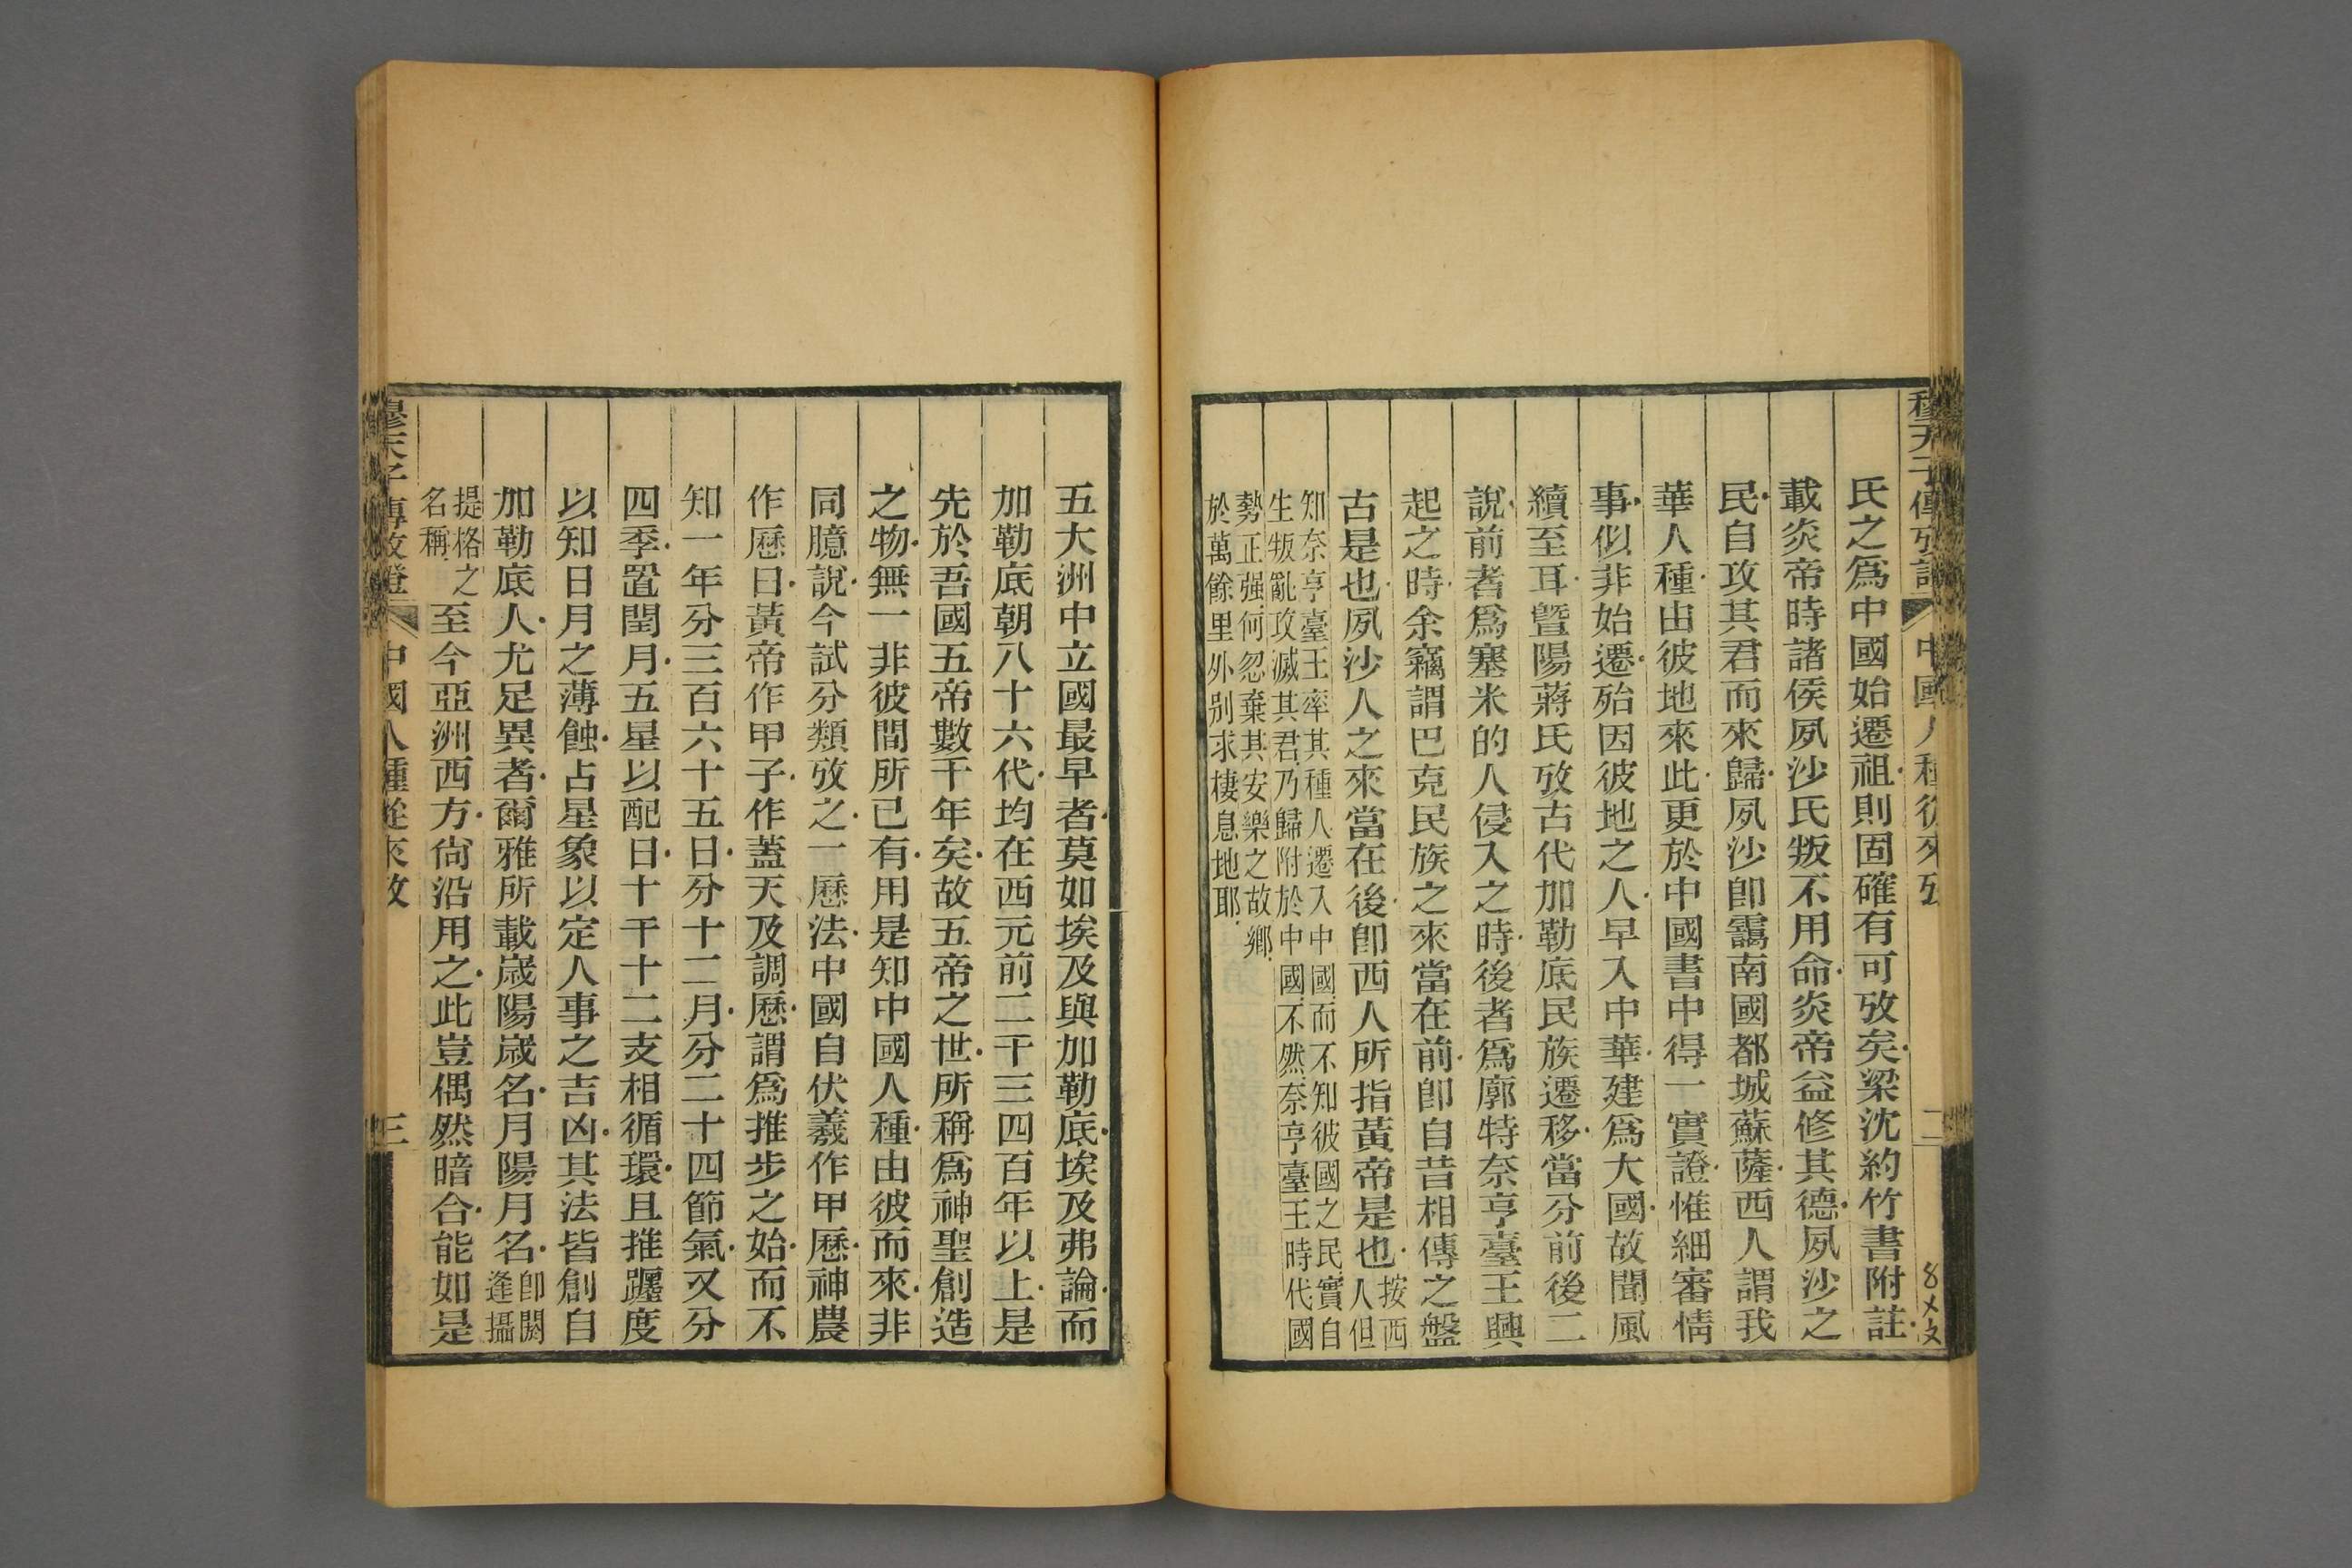 穆天子傳攷證 中國人種從來攷 二
氏之爲中國始遷祖則固確有可攷矣梁沈約竹書附註
載炎帝時諸侯夙沙氏叛不用命炎帝益修其德夙沙之
民自攻其君而來歸夙沙卽靄南國都城蘇薩西人謂我
華人種由彼地來此更於中國書中得一實證惟細審情
事似非始遷殆因彼地之人早入中華建爲大國故聞風
續至耳曁陽蔣氏攷古代加勒底民族遷移當分前後二
說前者爲塞米的人侵入之時後者爲廓特奈亨臺王興
起之時余竊謂巴克民族之來當在前卽自昔相傳之盤
古是也夙沙人之來當在後卽西人所指黃帝是也按西人但
知奈亨臺王率其種人遷入中國而不知彼國之民實自
生叛亂攻滅其君乃歸附於中國不然奈亨臺王時代國
勢正强何忽棄其安樂之故鄉
於萬餘里外別求棲息地耶
五大洲中立國最早者莫如埃及與加勒底埃及弗論而
加勒底朝八十六代均在西元前二千三四百年以上是
先於吾國五帝數千年矣故五帝之世所稱爲神聖創造
之物無一非彼間所已有用是知中國人種由彼而來非
同臆說今試分類攷之一曆法中國自伏羲作甲曆神農
作曆日黃帝作甲子作蓋天及調曆謂爲推步之始而不
知一年分三百六十五日分十二月分二十四節氣又分
四季置閏月五星以配日十干十二支相循環且推躔度
以知日月之薄蝕占星象以定人事之吉凶其法皆創自
加勒底人尤足異者爾雅所載歲陽歲名月陽月名卽閼逢攝
提格之名稱至今亞洲西方尙沿用之此豈偶然暗合能如是
穆天子傳攷證 中國人種從來攷 三